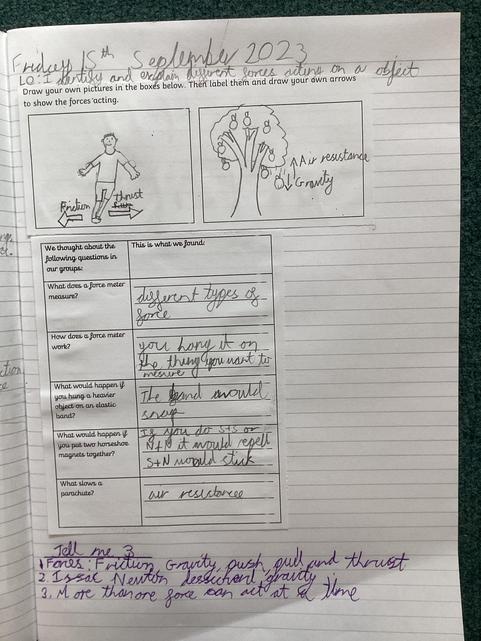 Friday 15th September 2023
LO: I identify and explain different forces acting on a object
Draw your own pictures in the boxes below. Then label them and draw your own arrows
to show the forces acting.
Friction
thrust
Air resistance
Gravity
We thought about the following questions in our groups:
This is what we found:
What does a force meter measure?
different types of
force
How does a force meter work?
you hang it on
the thing you want to
mesure
What would happen if you hung a heavier object on an elastic band?
The band would
snap
What would happen if you put two horseshoe magnets together?
If you do S+S or
N+N it would repell
S+N would stick
What slows a parachute?
air resistance
Tell me 3
1. Forces: Friction, Gravity, push, pull and thrust
2. Issac Newton gravity
3. More than one force can act at a time